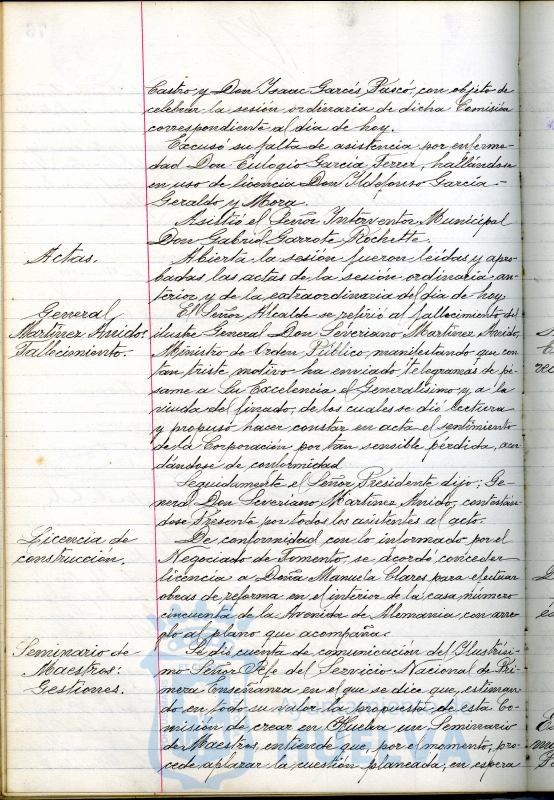 Castro, y Don Isaac Garcés Pascó, con objeto de
celebrar la sesión ordinaria de dicha Comisión
correspondiente al día de hoy.
Excusó su falta de asistencia por enferme-
dad Don Eulogio García Ferrer, hallándose
en uso de licencia Don Ildefonso García-
Geraldo y Mora.
Asistió el Señor Interventor Municipal
Don Gabriel Garrote Rochette.
Actas.
Abierta la sesión fueron leídas y apro-
badas las actas de la sesión ordinaria an-
terior y de la extraordinaria del día de hoy
General
Martínez Anido:
Fallecimiento.
El Señor Alcalde se refirió al fallecimiento del
ilustre General Don Severiano Martínez Anido,
Ministro de Orden Público, manifestando que con
tan triste motivo ha enviado telegramas de pé-
same a Su Excelencia el Generalísimo y a la
viuda del finado, de los cuales se dió lectura
y propuso hacer constar en acta el sentimiento
de la Corporación por tan sensible pérdida, acor-
dándose de conformidad
Seguidamente el Señor Presidente dijo: Ge-
neral Don Severiano Martínez Anido, contestán-
dose Presente por todos los asistentes al acto.
Licencia de
construcción.
De conformidad con lo informado por el
Negociado de Fomento, se acordó conceder
licencia a Doña Manuela Clares para efectuar
obras de reforma en el interior de la casa número
cincuenta de la Avenida de Alemania, con arre-
glo al plano que acompaña.
Seminario de
Maestros:
Gestiones.
Se dió cuenta de comunicación del Ilustrísi-
mo Señor Jefe del Servicio Nacional de Pri-
mera Enseñanza en el que se dice que, estiman-
do en todo su valor la propuesta de esta Co-
misión de crear en Huelva un Seminario
de Maestros, entiende que, por el momento, pro-
cede aplazar la cuestión planeada, en espera